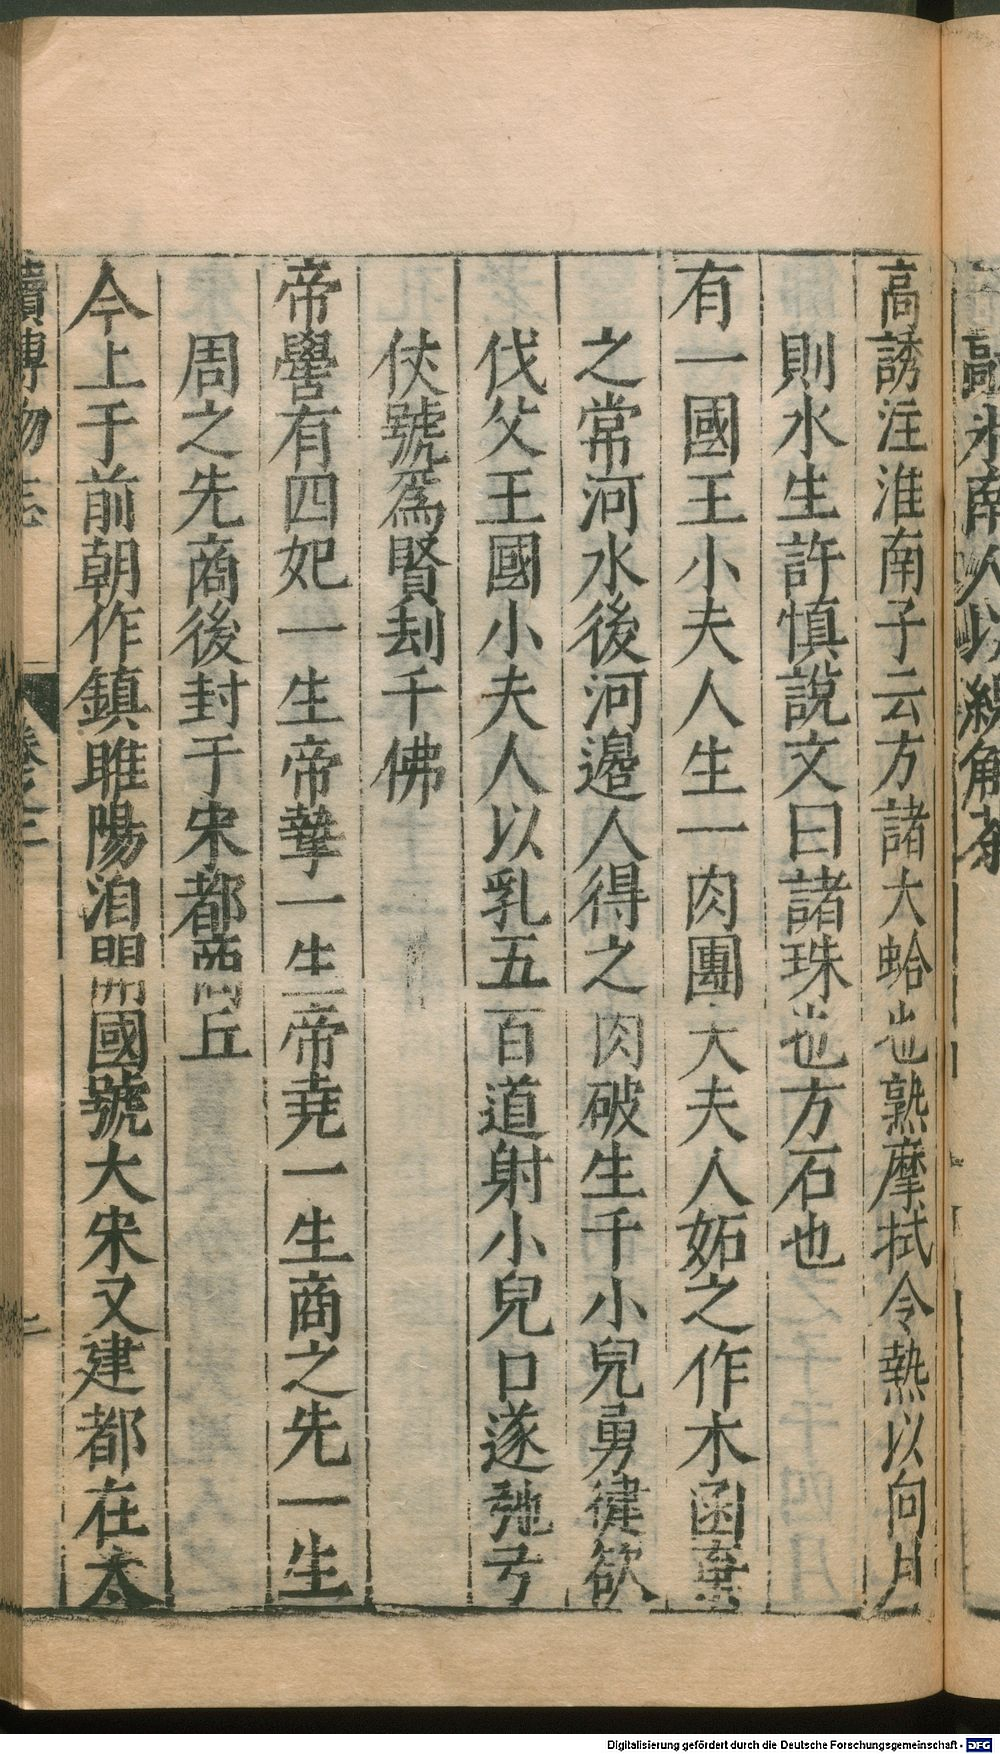 高誘注淮南子云方諸大蛤也熟摩拭令熱以向月
則水生許慎說文曰諸珠也方石也
有一國王小夫人生一肉團大夫人妬之作木函棄
之常河水後河邊人得之肉破生千小兒勇健欲
伐父王國小夫人以乳五百道射小兒口遂弛弓
仗號爲賢刦千佛
帝嚳有四妃一生帝摯一生帝堯一生商之先一生
周之先商後封于宋都商丘
今上于前朝作鎮睢陽洎開國號大宋又建都在太
續博物志
卷之二
Digitalisierung gefördert durch die Deutsche Forschungsgemeinschaft - DFG